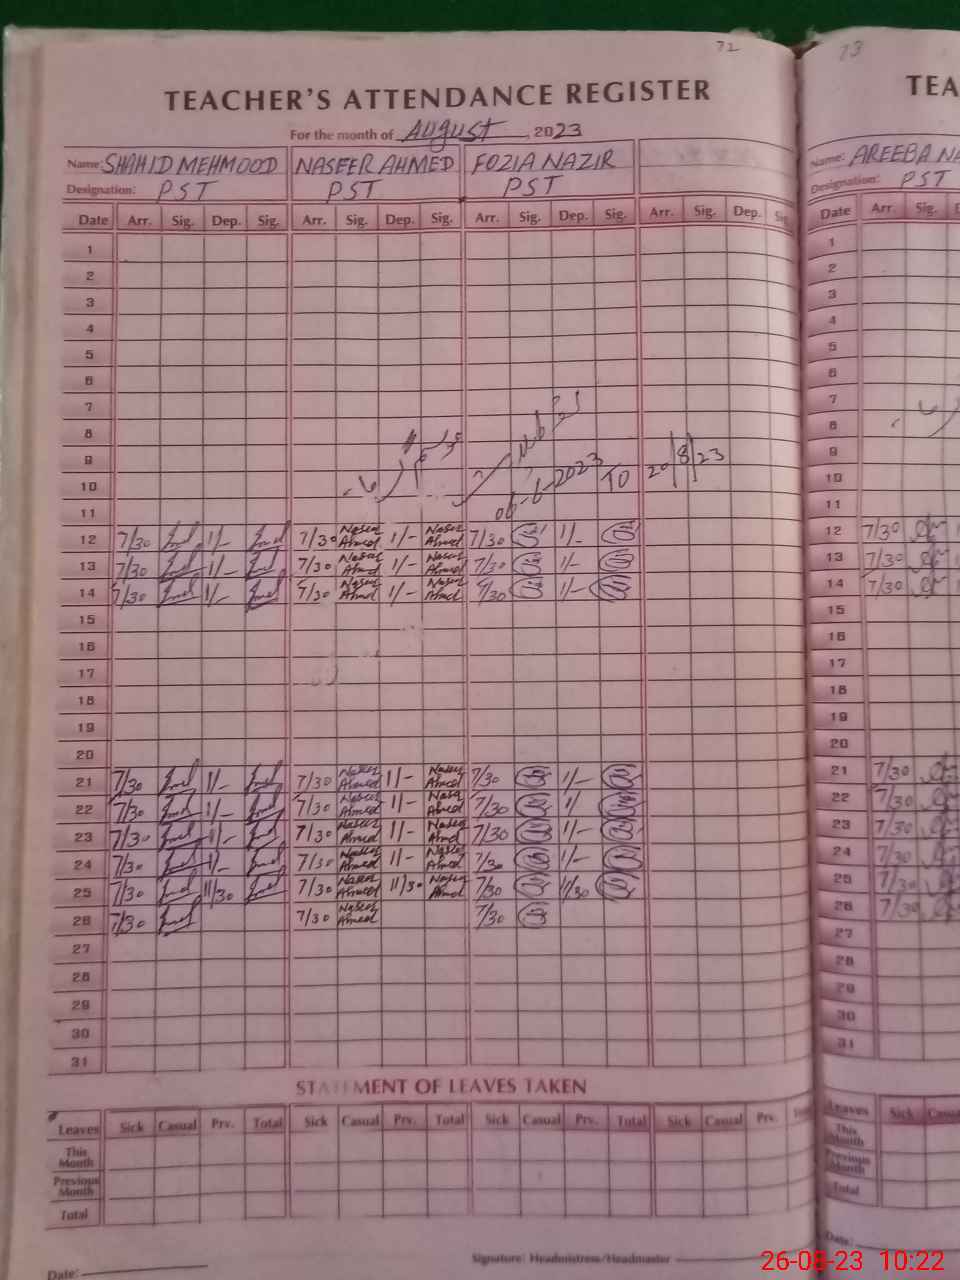 72
73
TEACHER'S ATTENDANCE REGISTER
TEA
For the month of August, 2023
Name: SHAHID MEHMOOD NASEER AHMED FOZIA NAZIR
Name: AREEBA NA
Designation: PST PST PST
Designation: PST
Date Arr. Sig. Dep. Sig. Arr. Sig. Dep. Sig. Arr. Sig. Dep. Sig. Arr. Sig. Dep. Sig
Date Arr. Sig. D
1 1
2 2
3 3
4 4
5 5
6 6
7 7
8 8
9 9
10 06-6-2023 TO 20/8/23 10
11 11
12 7/30 1/- 7/30 Naseer Ahmed 1/- Naseer Ahmed 7/30 1/- 12 7/30
13 7/30 1/- 7/30 Naseer Ahmed 1/- Naseer Ahmed 7/30 1/- 13 7/30
14 7/30 1/- 7/30 Naseer Ahmed 1/- Naseer Ahmed 7/30 1/- 14 7/30
15 15
16 16
17 17
18 18
19 19
20 20
21 7/30 1/- 7/30 Naseer Ahmed 1/- Naseer Ahmed 7/30 1/- 21 7/30
22 7/30 1/- 7/30 Naseer Ahmed 1/- Naseer Ahmed 7/30 1/ 22 7/30
23 7/30 1/- 7/30 Naseer Ahmed 1/- Naseer Ahmed 7/30 1/- 23 7/30
24 7/30 1/- 7/30 Naseer Ahmed 1/- Naseer Ahmed 7/30 1/- 24 7/30
25 7/30 11/30 7/30 Naseer Ahmed 11/30 Naseer Ahmed 7/30 11/30 25 7/30
26 7/30 7/30 Naseer Ahmed 7/30 26 7/30
27 27
28 28
29 29
30 30
31 31
STATEMENT OF LEAVES TAKEN
Leaves Sick Casual Prv. Total Sick Casual Prv. Total Sick Casual Prv. Total Sick Casual Prv.
Leaves Sick Casu
This Month
This Month
Previous Month
Previous Month
Total
Total
Signature: Headmistress/Headmaster
Date:
Date:
26-08-23 10:22